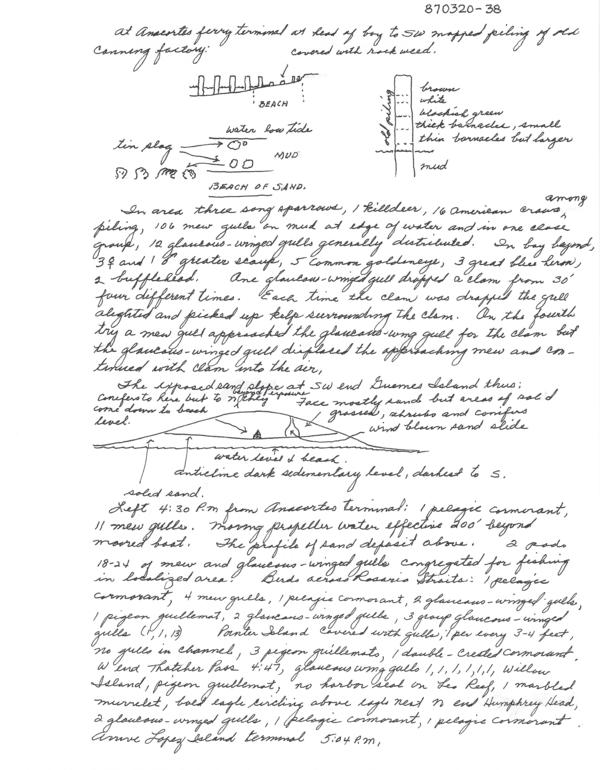 870320-38
At Anacortes ferry terminal at head of bay to SW mapped piling of old
canning factory:
covered with rock weed.
BEACH
water low tide
tin slag
MUD
BEACH OF SAND.
old piling
brown
white
blackish green
thick barnacles, small
thin barnacles but larger
mud
In area three song sparrows, 1 killdeer, 16 American crows, among
piling, 106 mew gulls on mud at edge of water and in one close
group, 12 glaucous-winged gulls generally distributed. In bay beyond,
3♀ and 1♂ greater scaup, 5 common goldeneye, 3 great blue heron,
2 bufflehead. One glaucous-winged gull dropped a clam from 30'
four different times. Each time the clam was dropped the gull
alighted and picked up kelp surrounding the clam. On the fourth
try a mew gull approached the glaucous-wing gull for the clam but
the glaucous-winged gull displaced the approaching mew and con-
tinued with clam into the air.
The exposed sand slope at SW end Guemes Island thus:
conifers to here but to N they
beyond exposure
come down to beach
level.
Face mostly sand but areas of solid
grasses, shrubs and conifers
wind blown sand slide
water level & beach.
anticline dark sedimentary level, darkest to S.
solid sand.
Left 4:30 P.m from Anacortes terminal: 1 pelagic cormorant,
11 mew gulls. Moving propeller water effective 200' beyond
moored boat. The profile of sand deposit above. 2 pods
18-24 of mew and glaucous-winged gulls congregated for fishing
in localized area. Birds across Rosario Straits: 1 pelagic
cormorant, 4 mew gulls, 1 pelagic cormorant, 2 glaucous-winged gulls,
1 pigeon guillemot, 2 glaucous-winged gulls, 3 group glaucous-winged
gulls (1,1,13) Pointer Island covered with gulls, 1 per every 3-4 feet,
no gulls in channel, 3 pigeon guillemots, 1 double-crested cormorant.
W end Thatcher Pass 4:47, glaucous wing gulls 1,1,1,1,1,1, Willow
Island, pigeon guillemot, no harbor seal on Leo Reef, 1 marbled
murrelet, bald eagle circling above eagle nest N end Humphrey Head,
2 glaucous-winged gulls, 1 pelagic cormorant, 1 pelagic cormorant.
Arrive Lopez Island terminal 5:04 P.M.